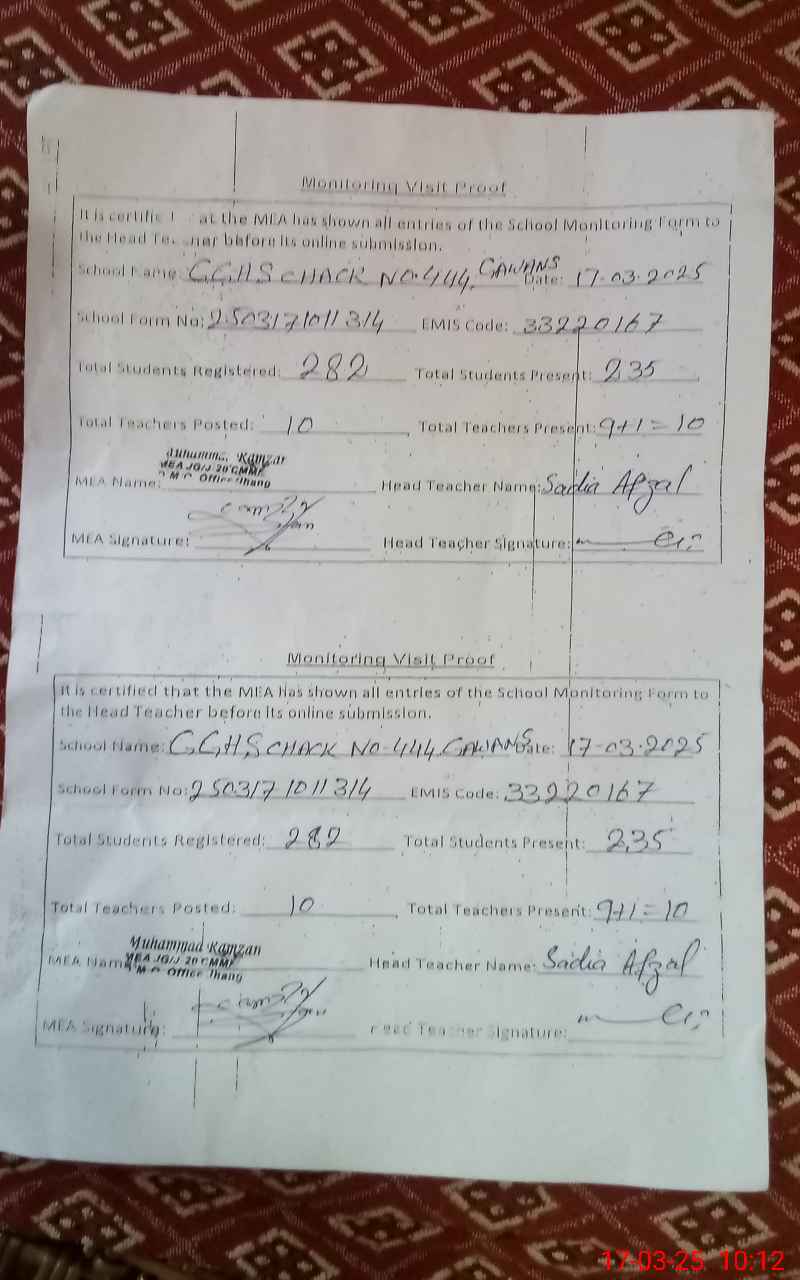 Monitoring Visit Proof
It is certifie at the MEA has shown all entries of the School Monitoring Form to
the Head before its online submission.
School Name: GGHS CHACK NO-444 GAWANS Date: 17-03-2025
School Form No: 250317 1011 314 EMIS Code: 33220167
Total Students Registered: 282 Total Students Present: 235
Total Teachers Posted: 10, Total Teachers Present: 9+1=10
Ramzan
MEA JG/J 20 CMMF
Office Jhang
MEA Name: Head Teacher Name: Sadia Afzal
MEA Signature: Head Teacher Signature:
Monitoring Visit Proof
It is certified that the MEA has shown all entries of the School Monitoring Form to
the Head Teacher before its online submission.
School Name: GGHS CHACK NO-444 GAWANS Date: 17-03-2025
School Form No: 250317 1011 314 EMIS Code: 33220167
Total Students Registered: 282 Total Students Present: 235
Total Teachers Posted: 10, Total Teachers Present: 9+1=10
Muhammad Ramzan
MEA JG/J 20 CMMF
Office Jhang
MEA Name Head Teacher Name: Sadia Afzal
MEA Signature: Head Teacher Signature:
17-03-25 10:12